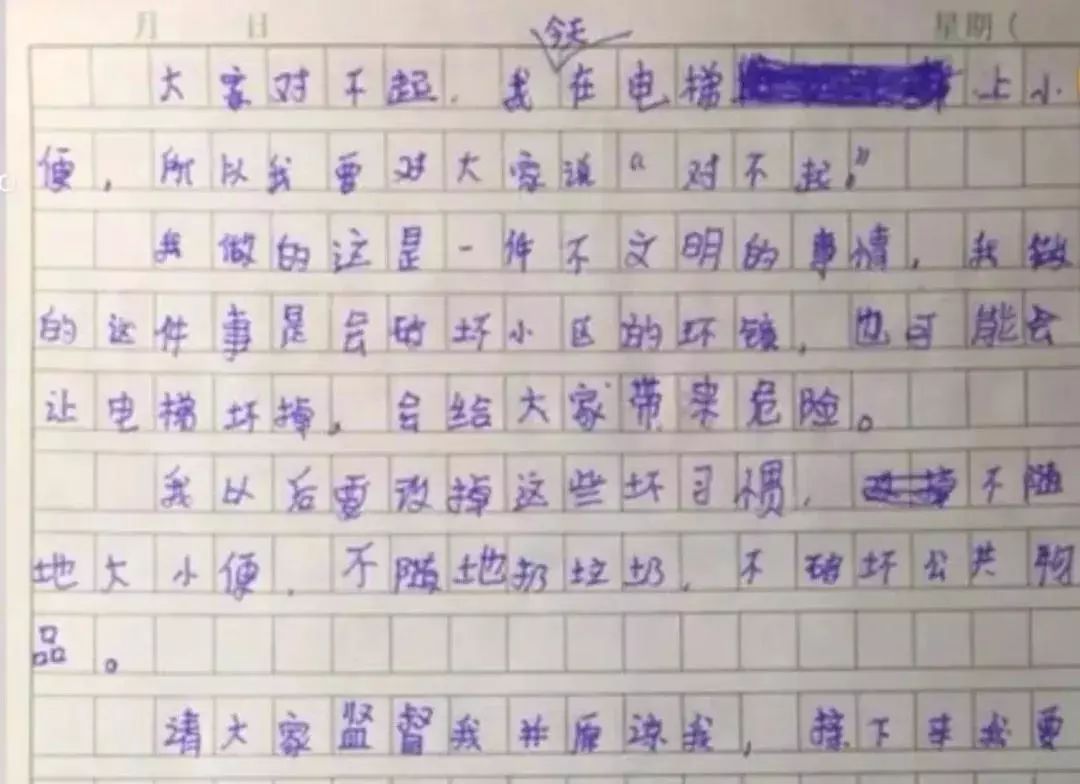 月 日 星期(
今天
大家对不起,我在电梯上小
便,所以我要对大家说“对不起,”
我做的这是一件不文明的事情,我做
的这件事是会破坏小区的环镜,也可能会
让电梯坏掉,会给大家带来危险。
我以后要改掉这些坏习惯,不随
地大小便,不随地扔垃圾,不破坏公共物
品。
请大家监督我并原谅我,接下来我要